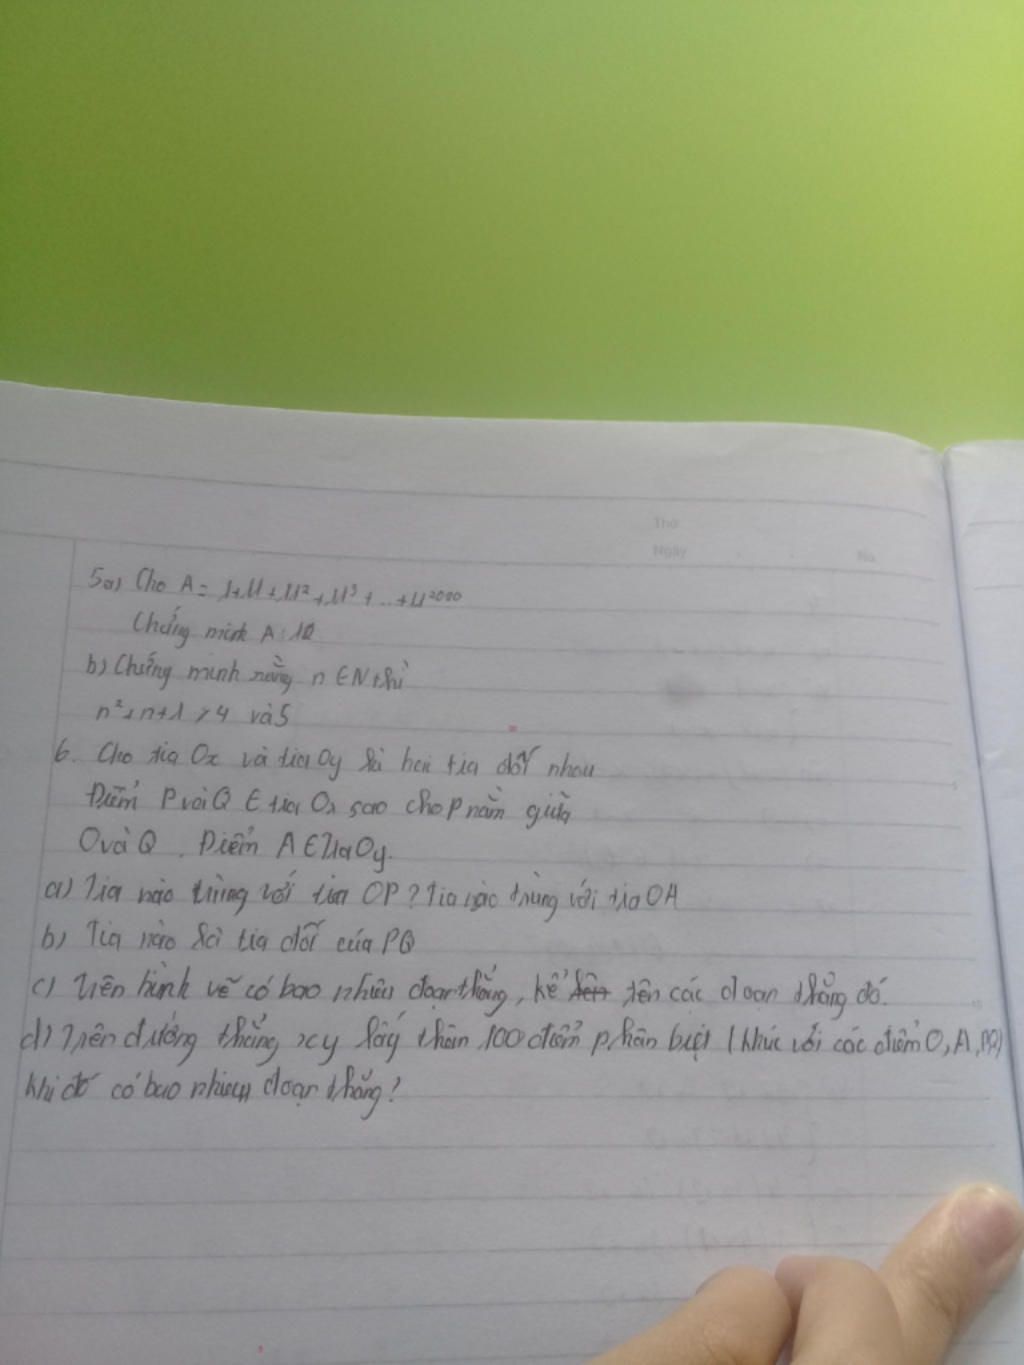 Thứ
Ngày . . No.
5a) Cho A = 1+11+11²+11³+...+11²⁰⁰⁰
Chứng minh A ⋮ 10
b) Chứng minh rằng n ∈ N thì
n²+n+1 ⋮ 4 và 5
6. Cho tia Ox và tia Oy là hai tia đối nhau
Điểm P và Q ∈ tia Ox sao cho P nằm giữa
O và Q . Điểm A ∈ Tia Oy.
a) Tia nào trùng với tia OP ? Tia nào trùng với tia OA
b) Tia nào là tia đối của PQ
c) Trên hình vẽ có bao nhiêu đoạn thẳng, kể tên các đoạn thẳng đó.
d) Trên đường thẳng xy lấy thêm 100 điểm phân biệt (khác với các điểm O, A, P, Q)
khi đó có bao nhiêu đoạn thẳng?